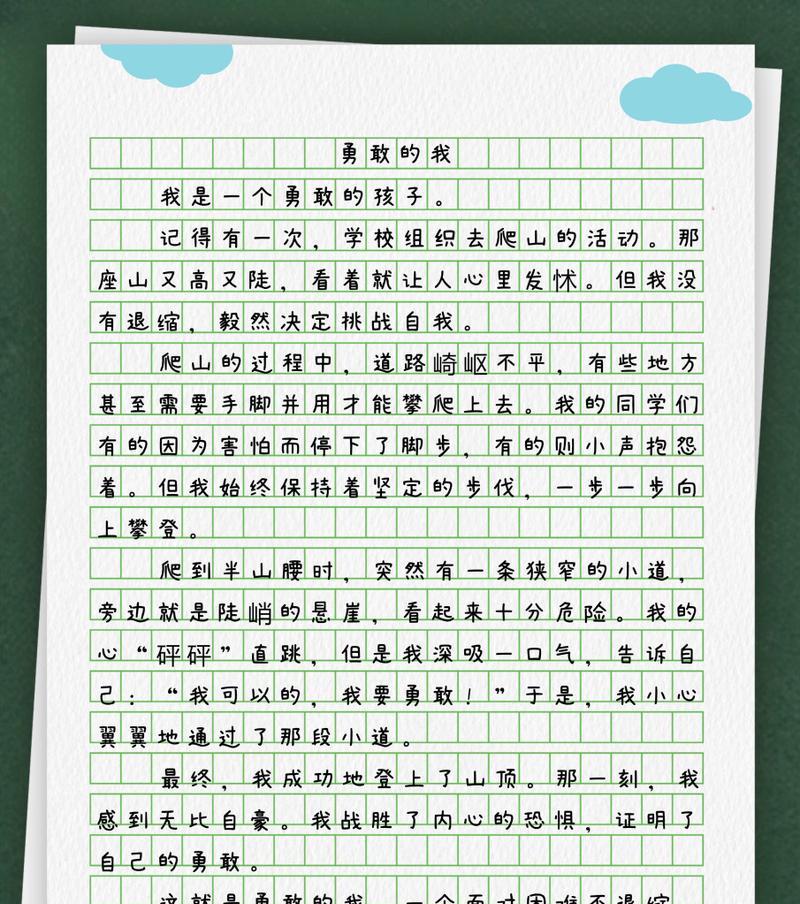 勇敢的我
我是一个勇敢的孩子。
记得有一次，学校组织去爬山的活动。那
座山又高又陡，看着就让人心里发怵。但我没
有退缩，毅然决定挑战自我。
爬山的过程中，道路崎岖不平，有些地方
甚至需要手脚并用才能攀爬上去。我的同学们
有的因为害怕而停下了脚步，有的则小声抱怨
着。但我始终保持着坚定的步伐，一步一步向
上攀登。
爬到半山腰时，突然有一条狭窄的小道，
旁边就是陡峭的悬崖，看起来十分危险。我的
心“砰砰”直跳，但是我深吸一口气，告诉自
己：“我可以的，我要勇敢！”于是，我小心
翼翼地通过了那段小道。
最终，我成功地登上了山顶。那一刻，我
感到无比自豪。我战胜了内心的恐惧，证明了
自己的勇敢。
这就是勇敢的我，一个面对困难不退缩